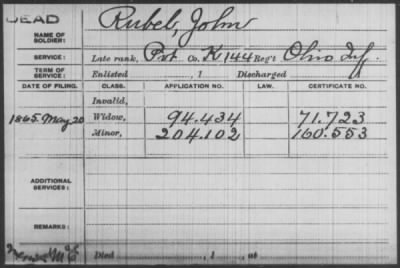 DEAD
NAME OF SOLDIER: Rubel, John
SERVICE: Late rank, Pvt Co. K 144 Reg't Ohio Inf.
TERM OF SERVICE: Enlisted , 1 Discharged
DATE OF FILING. CLASS. APPLICATION NO. LAW. CERTIFICATE NO.
Invalid,
1865 May 20 Widow, 94.434 71.723
Minor, 204.102 160.553
ADDITIONAL SERVICES:
REMARKS:
Died , 1 , at